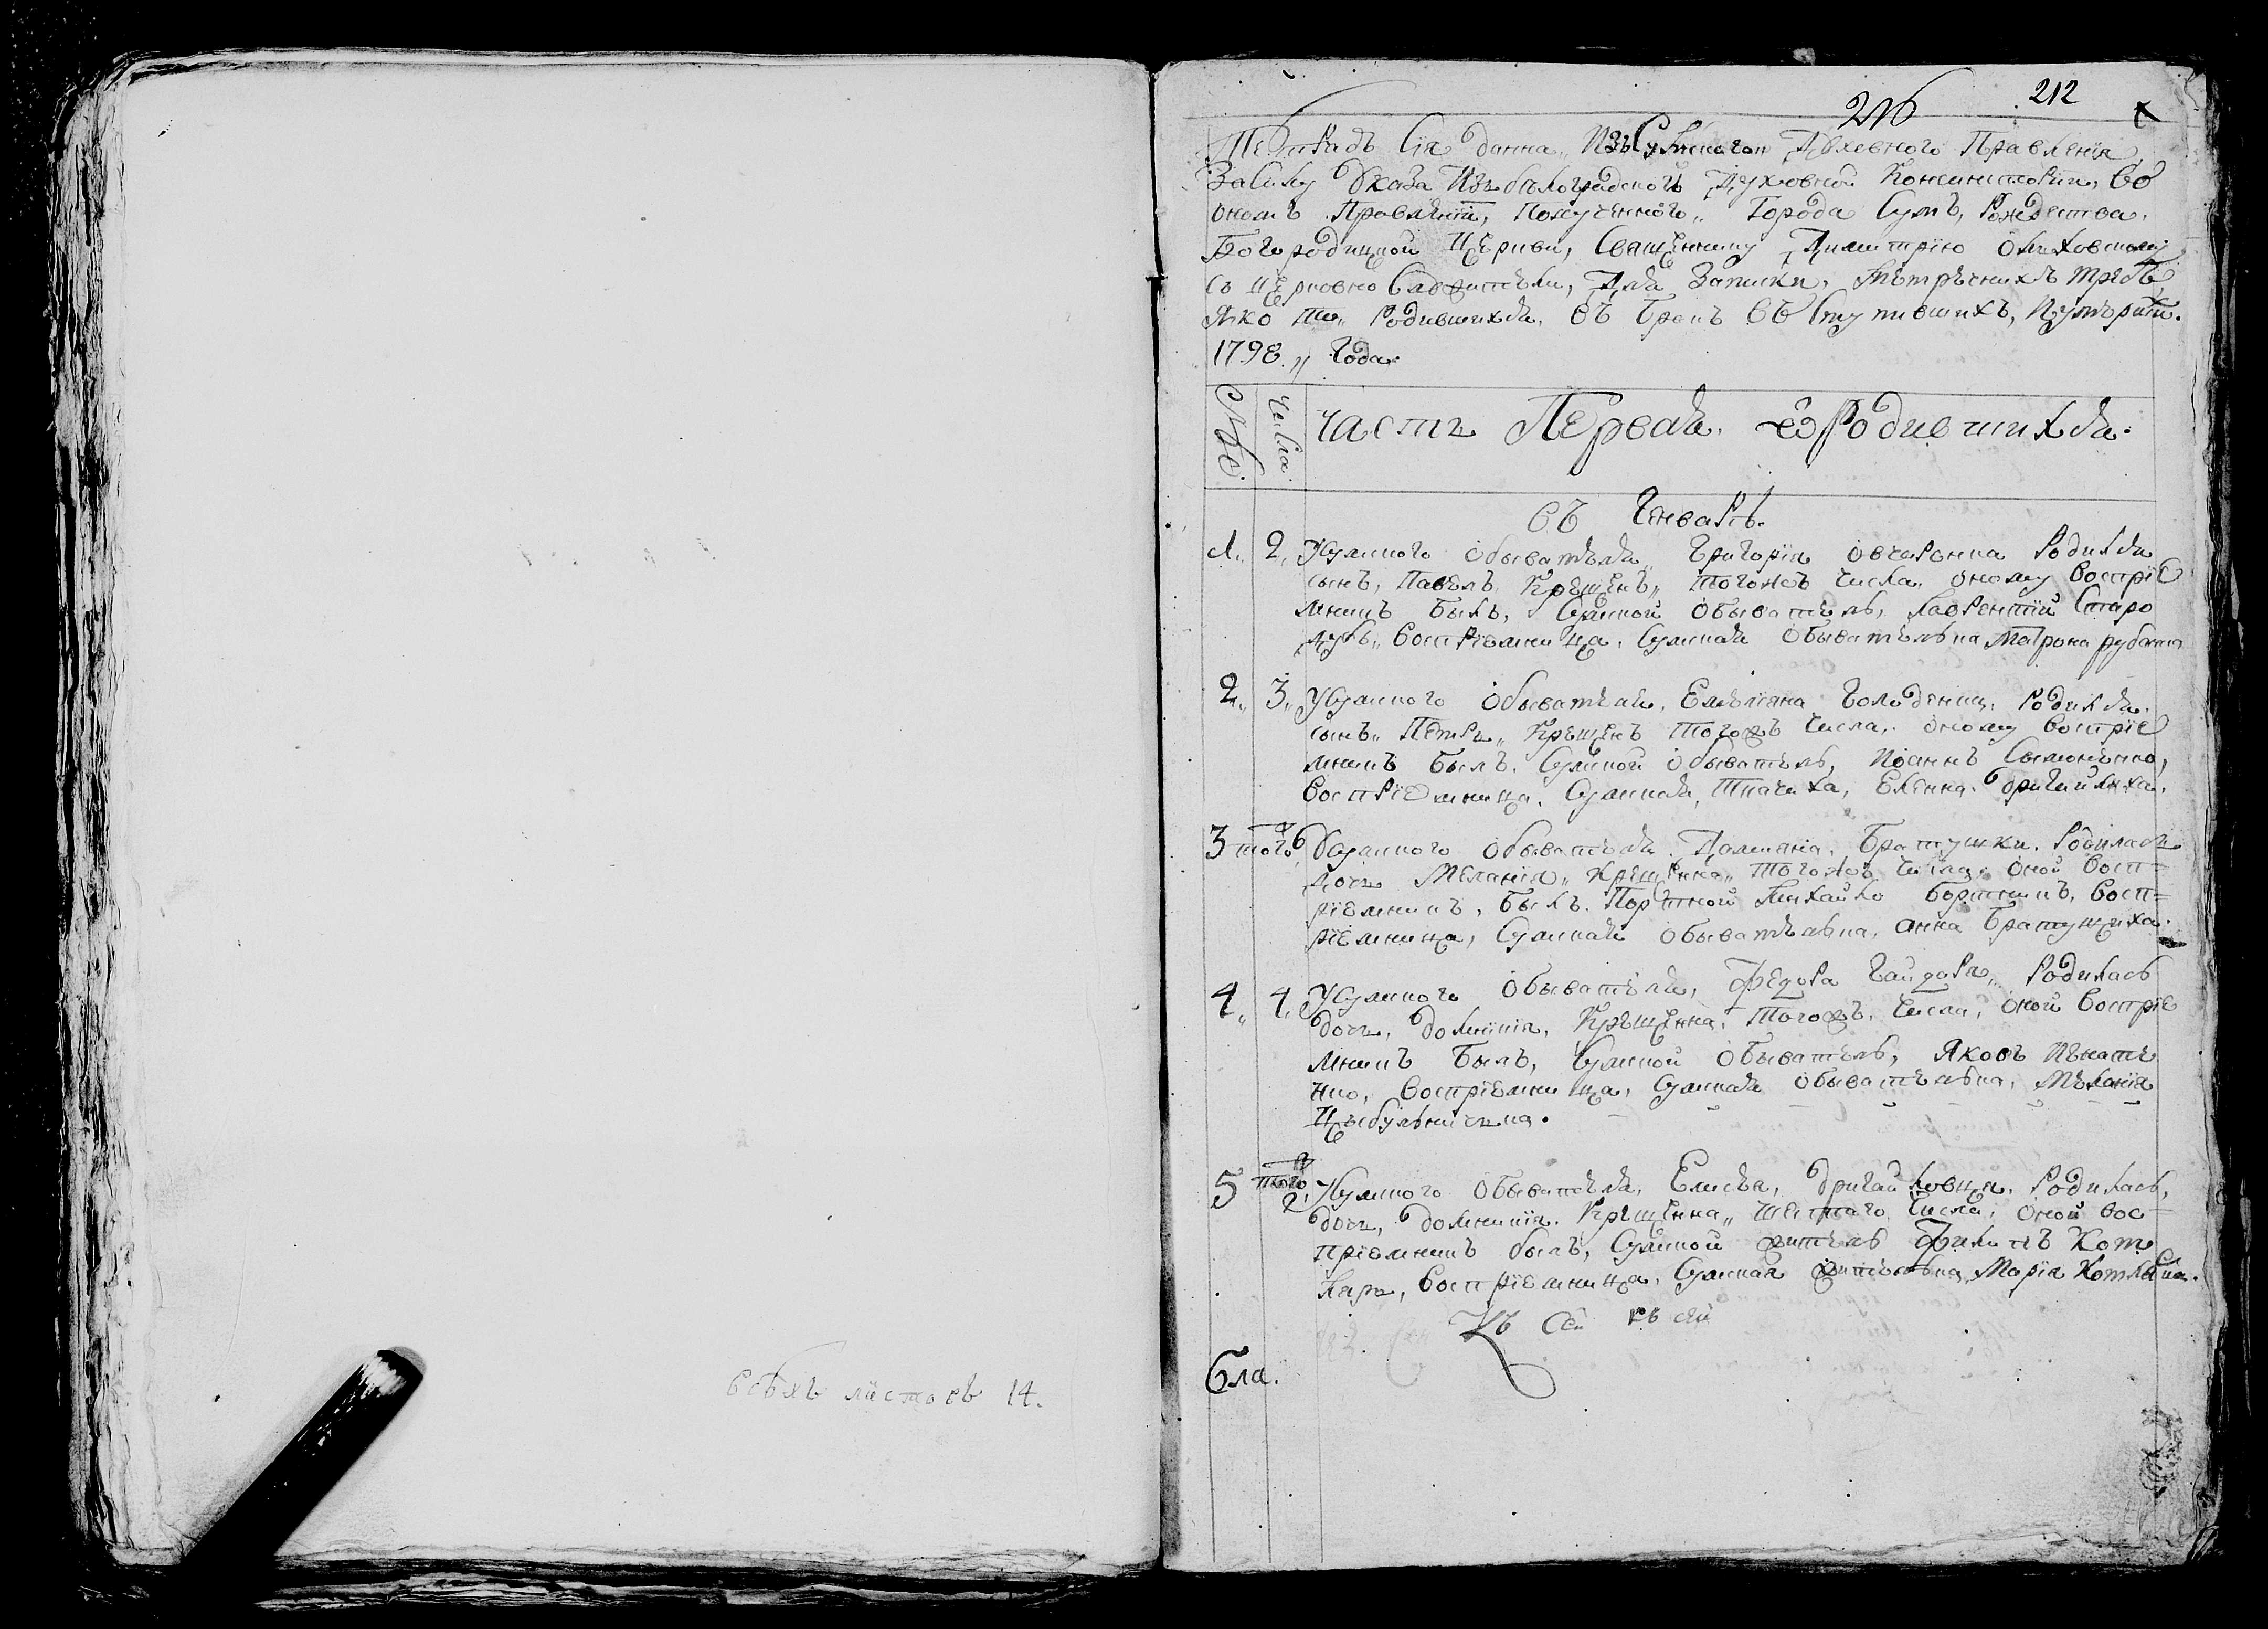 всѣхъ листовъ 14.
212
Тетрадь Сія данна, Изъ Сумского Духовного Правленія
За силу Указа Изъ белоградской Духовной Консисторіи, Во
ономъ Правленіи, Полученного, Города Сумъ, Рождества
Богородицкой Церкви, Священнику Димитрію
Съ церковно Служители, Для Записки, метрѣчнихъ требъ
Яко то, Родившихся, въ бракъ въ Ступившихъ, И умершихъ.
1798, Года.
Числа
Часть Первая ѡ Родившихся.
въ Генварѣ.
1. 2, У Сумского Обывателя, Григорія Овчаренка Родился
сынъ, Павелъ, Крещенъ, тогожъ числа, оному Воспріе
мникъ былъ, Сумской Обыватель, Лаврентій Старо
дубъ, Воспріемница, Сумская Обывателька Матрона
2, 3, У Сумского Обывателя, Емельяна, Родился
сынъ, Петръ, Крещенъ тогожъ числа, оному воспріе
мникъ былъ, Сумской Обыватель, Иоаннъ Сымоненко,
Воспріемница, Сумская, Ткачиха, Елена
3 того У Сумского Обывателя, Дамияна, Братушки, Родилась
дочь Меланія, Крещенна, тогожъ числа, оной Восп=
ріемникъ, былъ Портной Михайло Бортникъ, Восп=
ріемница, Сумская Обывателька, Анна Братущиха.
4, 4, У Сумского Обывателя, Федора Гайдаря, Родилась
дочь, Домникія, Крещенна, тогожъ, числа, оной Воспріе
мникъ былъ, Сумской Обыватель, Яковъ Игнате
нко, Воспріемница, Сумская Обывателька, Меланія
Цыбульничка.
5 того У Сумского Обывателя, Елисея, Родилась,
дочь, Домникія, Крещенна, шестаго числа, оной вос=
пріемникъ былъ, Сумской житель Филипъ Кот
ляръ, Воспріемница, Сумская жителька, Марія
Къ Сей къ сей